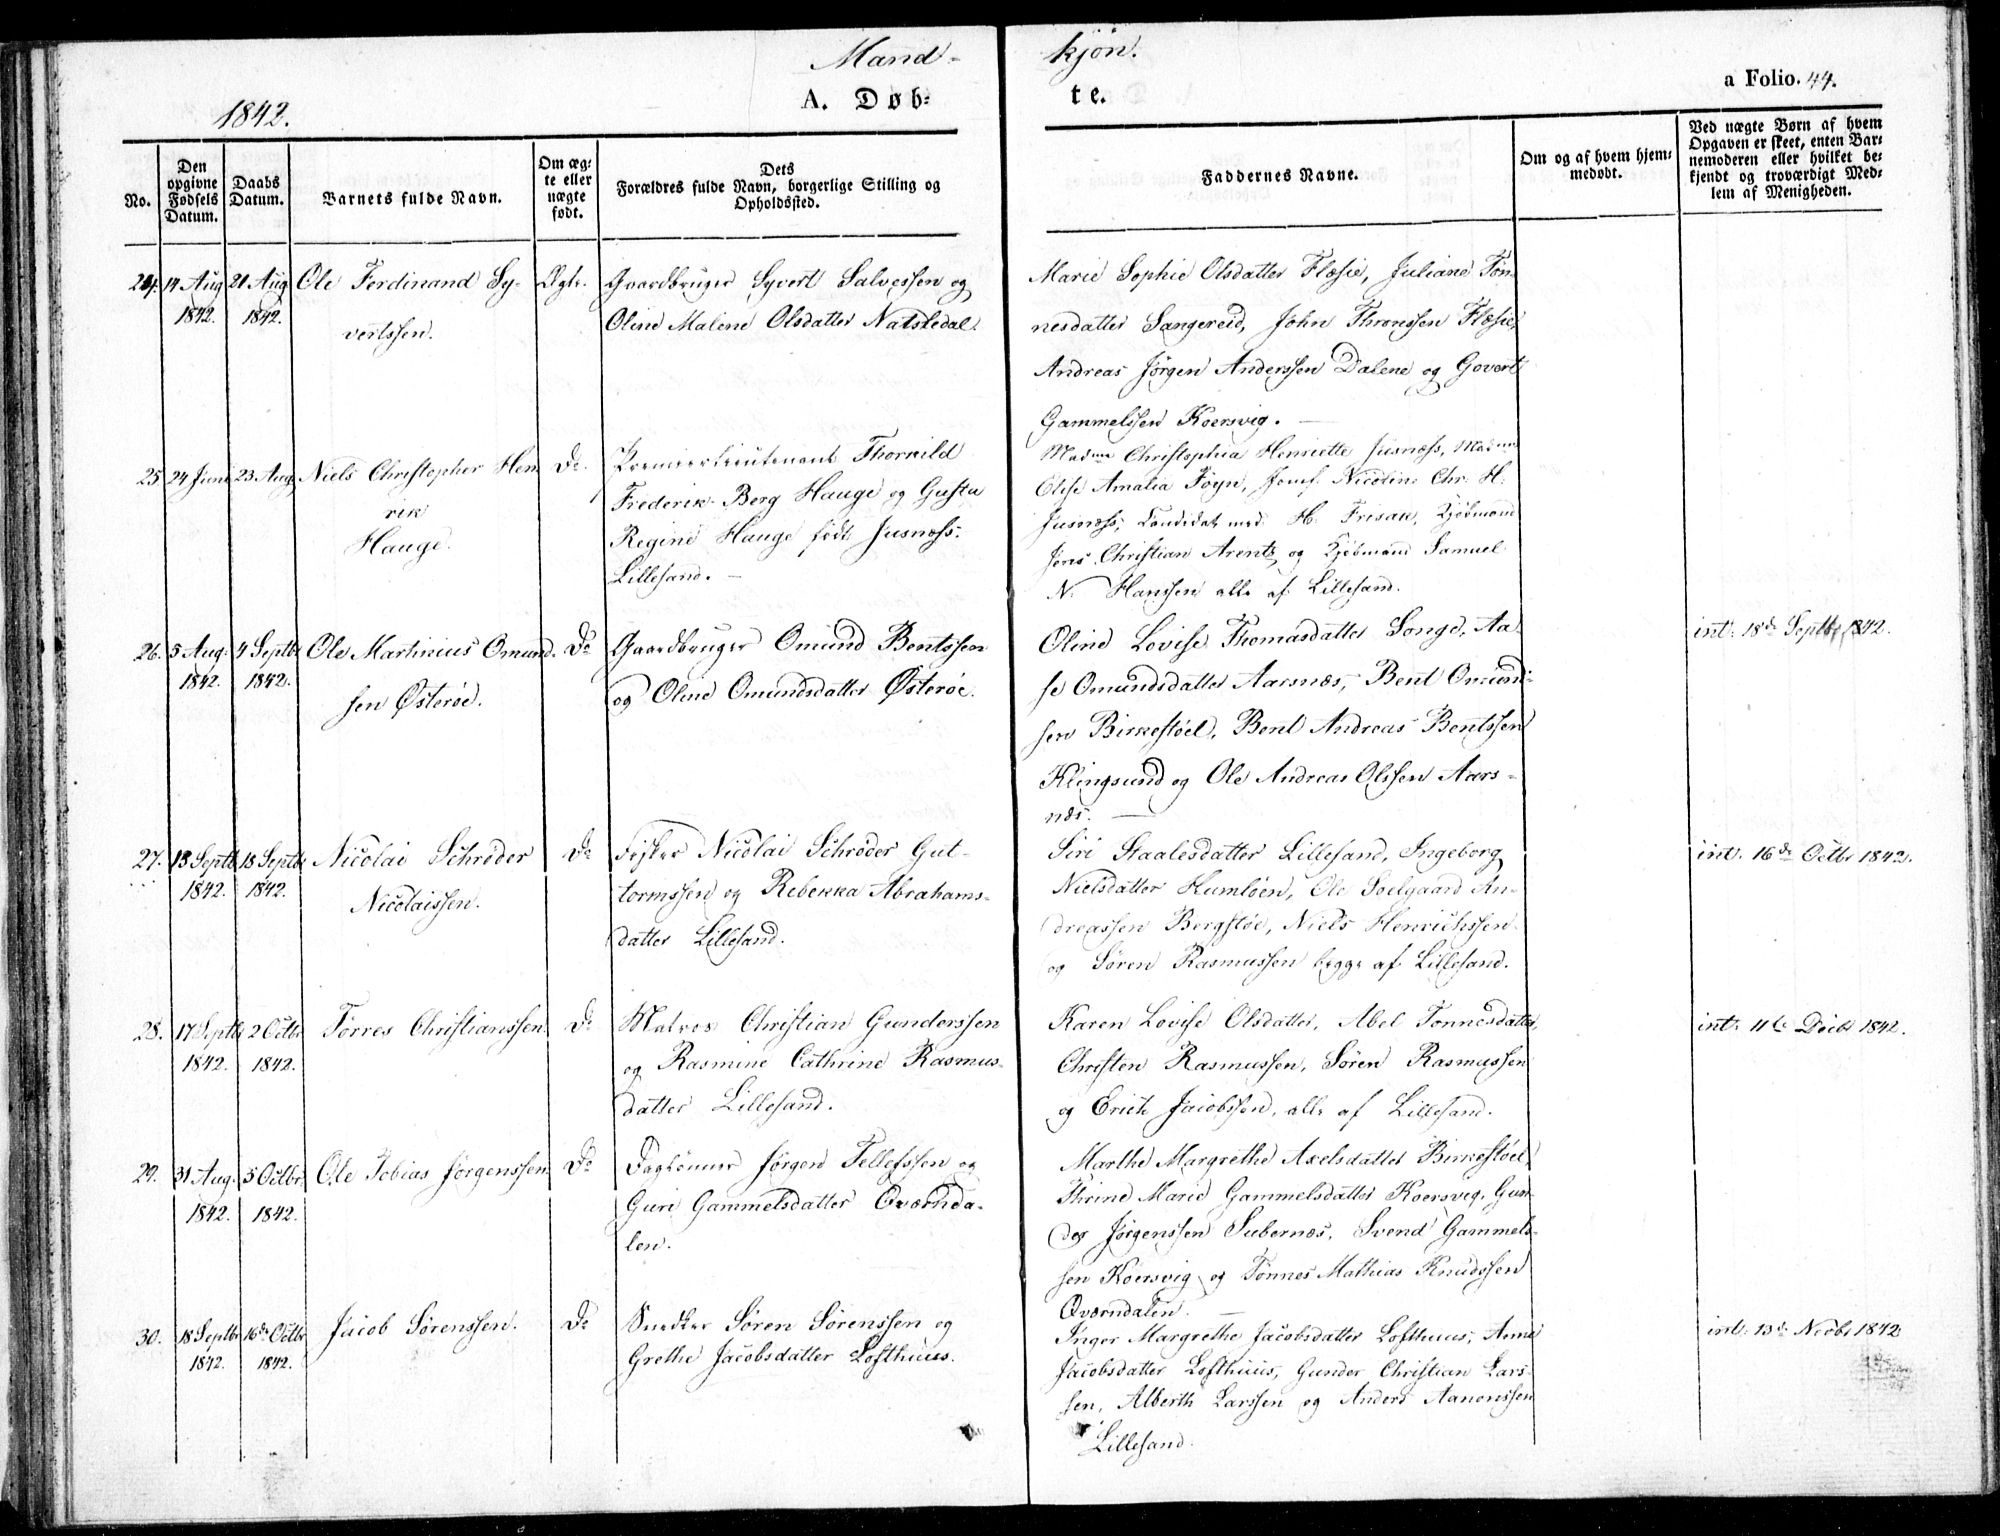 Mand-
kjön.
1842.
A. Døb-
te.
a Folio. 44.
No.
Den opgivne Fødsels Datum.
Daabs Datum.
Barnets fulde Navn.
Om æg-te eller uægte født.
Dets Forældres fulde Navn, borgerlige Stilling og Opholdssted.
Faddernes Navne.
Om og af hvem hjem-medøbt.
Ved uægte Børn af hvem Opgaven er skeet, enten Bar-nemoderen eller hvilket be-kjendt og troværdigt Med-lem af Menigheden.
24. 14 Aug 1842. 21 Aug 1842. Ole Ferdinand Sy-
vertssen.
Ægte.
Gaardbruger Syvert Salvessen og
Oline Malene Olsdatter Natskedal.
Marie Sophie Olsdatter Flæsie, Juliane Tøn-
nesdatter Sangereid, John Thronssen Flæsie,
Andreas Jörgen Anderssen Dalene og Govert
Gammelssen Koersvig.
25 24 Juni 23 Aug Niels Christopher Hen
rik
Hauge.
Do.
Premierlieutenant Thorkild
Frederik Berg Hauge og Gusta
Regine Hauge født Jusnæss.
Lillesand.
Madme Christophia Henriette Jusnæss, Madme
Olise Amalia Föyn, Jomf. Nicoline Chr. H.
Jusnæss, Candidat med. H. Frisak, Kjöbmand
Jens Christian Arentz og Kjöbmand Samuel
N. Hanssen alle af Lillesand.
26. 5 Aug. 1842. 4 Septbr 1842. Ole Martinius Omund-
sen Østerøe.
Do
Gaardbruger Omund Bentssen
og Oline Omundsdatter Østerøe.
Oline Lovise Thomasdatter Songe, Aa-
se Omundsdatter Aarsnæs, Bent Omund-
sen Birkestöel, Bent Andreas Bentssen
Klingsund og Ole Andreas Olssen Aars-
næs.
int. 18de Septbr 1842.
27. 13 Septb 1842. 18 Septbr 1842. Nicolai Schrøder
Nicolaissen.
Do
Fisker Nicolai Schrøder Gut-
tormssen og Rebekka Abrahams-
datter Lillesand.
Siri Staalesdatter Lillesand, Ingeborg
Nielsdatter Humlöen, Ole Soelgaard An-
dreassen Bergstöe, Niels Henrichssen
og Søren Rasmussen begge af Lillesand.
int. 16de Octbr 1842.
28. 17 Septbr 1842. 2 Octbr 1842. Törres Christianssen.
Do
Matros Christian Gunderssen
og Rasmine Cathrine Rasmus-
datter Lillesand.
Karen Lovise Olsdatter, Abel Tönnesdatter,
Christen Rasmussen, Søren Rasmussen
og Erich Jacobssen, alle af Lillesand.
int. 11te Decbr 1842.
29. 31 Aug. 1842. 5 Octbr. 1842. Ole Tobias Jörgenssen
Do
Daglönner Jörgen Tellefssen og
Guri Gammelsdatter Qværnda-
len.
Marthe Margrethe Axelsdatter Birkestöel,
Thrine Marie Gammelsdatter Koersvig, Gun-
der Jörgenssen Subernæs, Svend Gammels-
sen Koersvig og Tönnes Mathias Knudssen
Qværndalen.
30. 18 Septbr 1842. 16de Octbr 1842. Jacob Sörenssen.
Do
Snedker Sören Sörenssen og
Grethe Jacobsdatter Lofthuus.
Inger Margrethe Jacobsdatter Lofthuus, Anne
Jacobsdatter Lofthuus, Gunder Christian Lars-
sen, Alberth Larssen og Anders Aanonssen
Lillesand.
int. 13de Novbr 1842